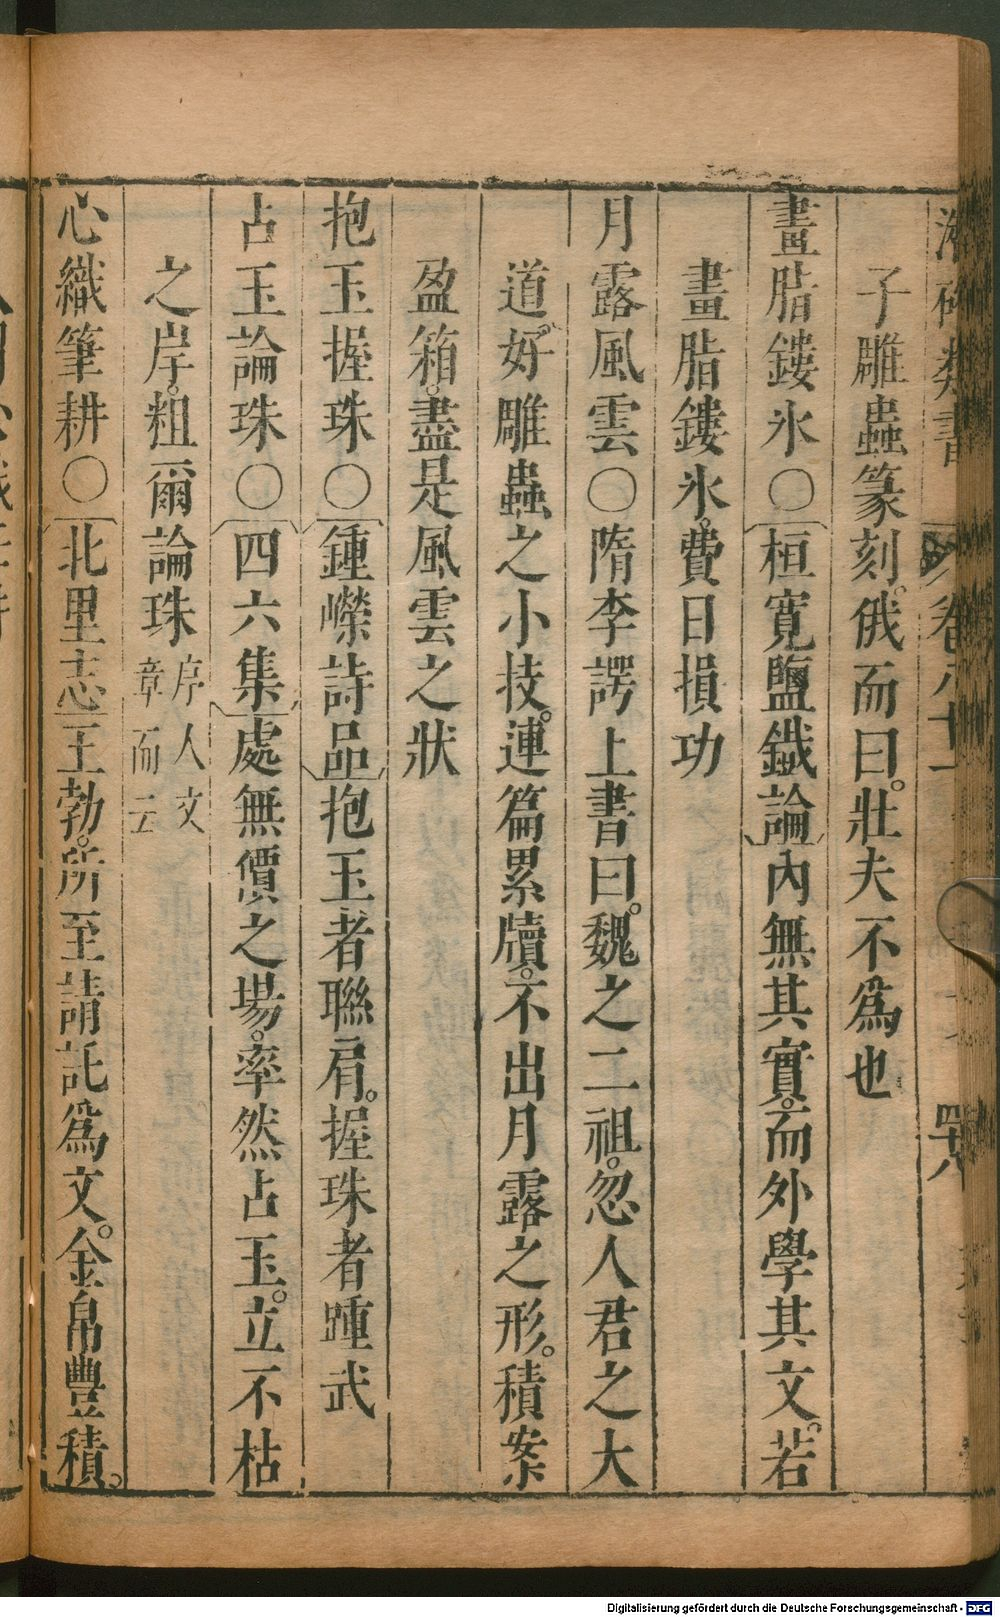 子雕蟲篆刻。俄而曰。壯夫不爲也
畫脂鏤氷○桓寬鹽鐵論內無其實。而外學其文。若
畫脂鏤氷。費日損功
月露風雲○隋李諤上書曰。魏之二祖。忽人君之大
道。好雕蟲之小技。連篇累牘。不出月露之形。積案
盈箱。盡是風雲之狀
抱玉握珠○鍾嶸詩品抱玉者聯肩。握珠者踵武
占玉論珠○四六集處無價之場。率然占玉。立不枯
之岸。粗爾論珠序人文章而云
心織筆耕○北里志王勃。所至請託爲文。金帛豐積。
卷八十一
四十八
Digitalisierung gefördert durch die Deutsche Forschungsgemeinschaft - DFG